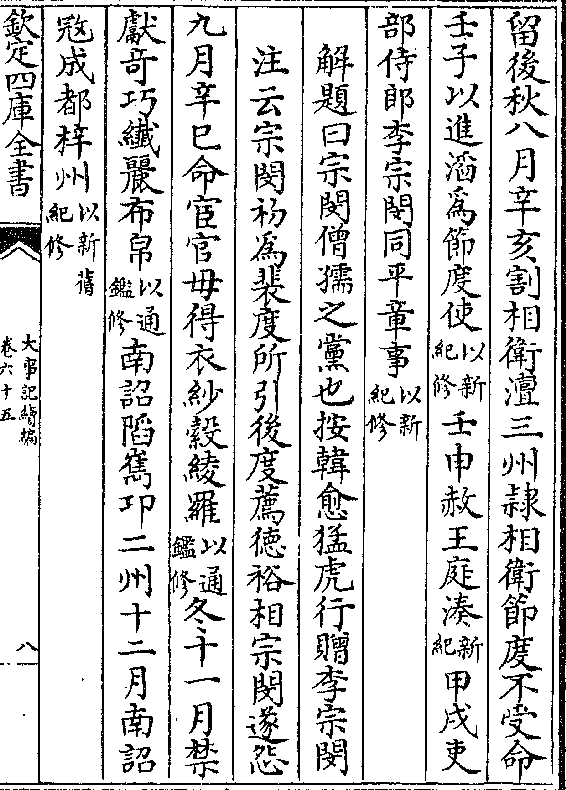 留後秋八月辛亥割相衛澶三州隷相衛節度不受命
壬子以進滔爲節度使以新紀修壬申赦王庭湊新紀甲戌吏
部侍郎李宗閔同平章事以新紀修
解題曰宗閔僧孺之黨也按韓愈猛虎行贈李宗閔
注云宗閔初爲裴度所引後度薦徳裕相宗閔遂怨
九月辛巳命宦官毋得衣紗縠綾羅以通鑑修冬十一月禁
獻奇巧纎麗布帛以通鑑修南詔陷嶲卭二州十二月南詔
宼成都梓州以新舊紀修
欽定四庫全書
大事記續編
卷六十五
八